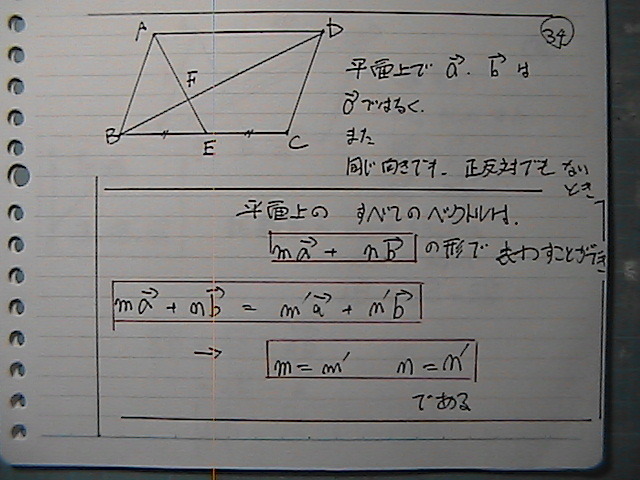 34
A
D
F
B
E
C
平面上で a⃗. b⃗ は
0⃗ではなく.
また
同じ向きでも. 正反対でもない
とき
平面上の すべてのベクトルは.
ma⃗ + nb⃗ の形で 表わすことができ
ma⃗ + nb⃗ = m'a⃗ + n'b⃗
→ m = m' n = n'
である